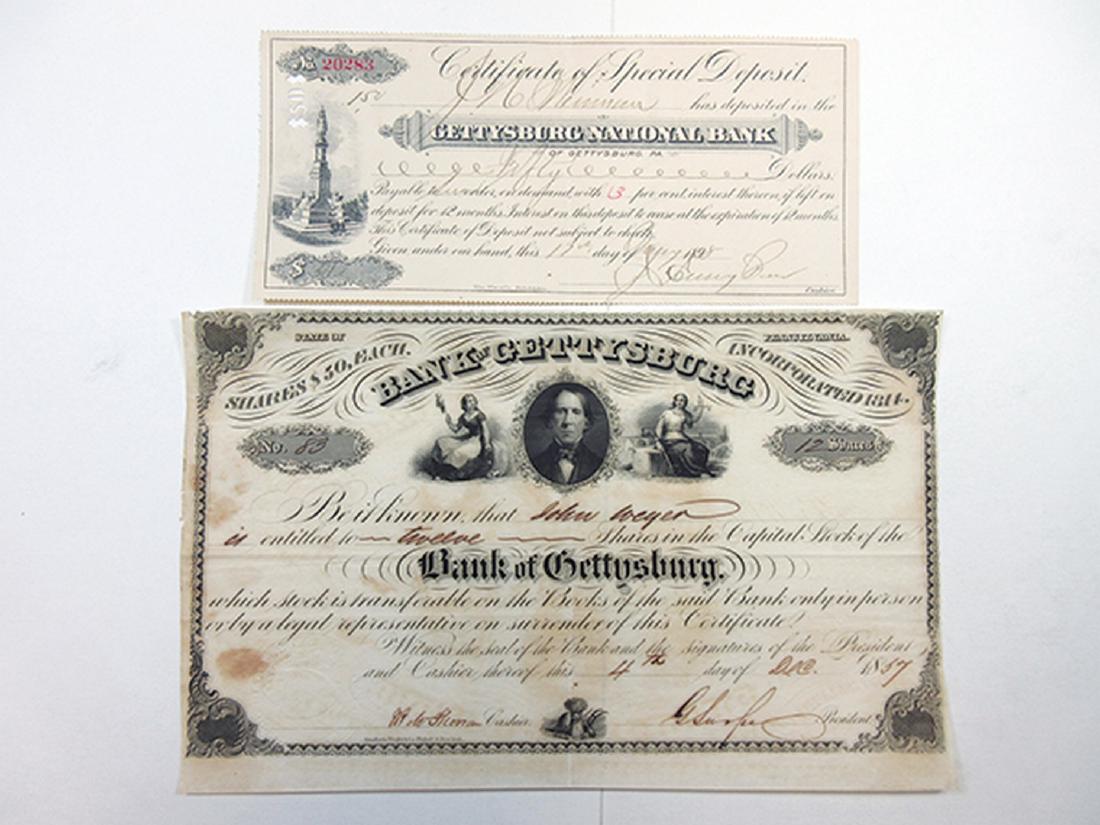 No. 20283
Certificate of Special Deposit.
has deposited in the
GETTYSBURG NATIONAL BANK
OF GETTYSBURG, PA.
Fifty Dollars.
Payable to order, on demand, with 3 per cent. interest thereon, if left on
deposit for 12 months. Interest on this deposit to cease at the expiration of 12 months.
This Certificate of Deposit not subject to check.
Given under our hand, this day of 1898
$
Cashier.
STATE OF PENNSYLVANIA.
SHARES $50, EACH. BANK OF GETTYSBURG INCORPORATED 1814.
No. 83 12 Shares
Be it known, that John Weyer
is entitled to twelve Shares in the Capital Stock of the
Bank of Gettysburg.
which stock is transferable on the Books of the said Bank only in person
or by a legal representative on surrender of this Certificate.
Witness the seal of the Bank and the signatures of the President
and Cashier thereof this 4th day of Dec. 1857
Cashier. President